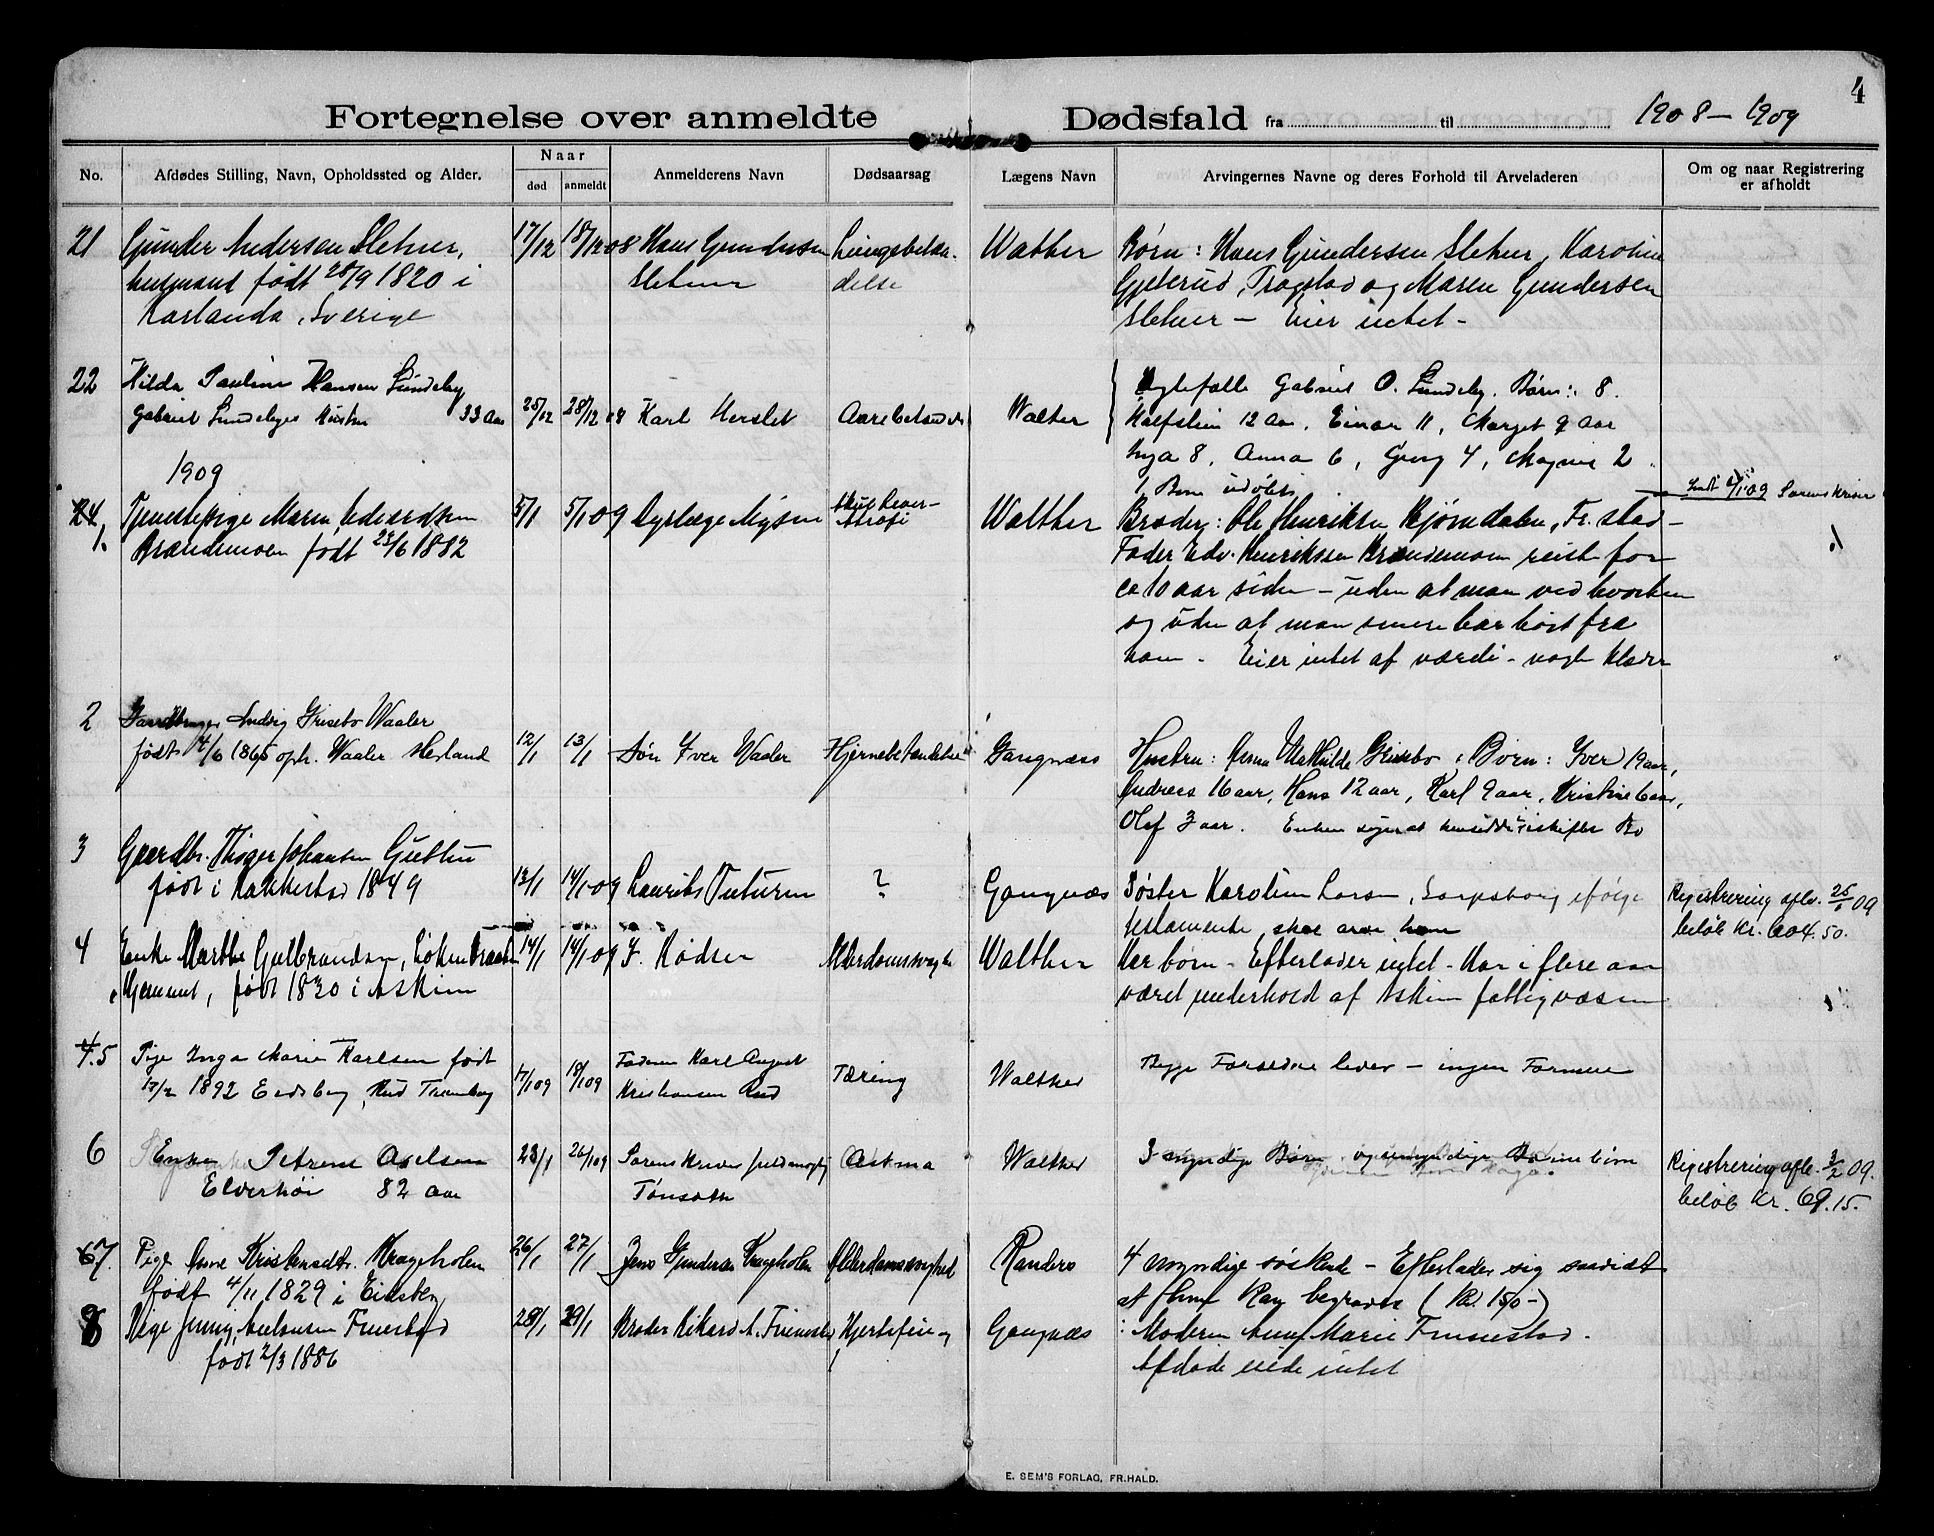 4
Fortegnelse over anmeldte Dødsfald fra til 1908-1909
No.
Afdødes Stilling, Navn, Opholdssted og Alder.
Naar
død anmeldt
Anmelderens Navn
Dødsaarsag
Lægens Navn
Arvingernes Navne og deres Forhold til Arveladeren
Om og naar Registrering
er afholdt
21
Gunder Andersen Sletner,
husmand født 28/9 1820 i
Karlanda, Sverige
17/12
18/12 08
Hans Gundersen
Sletner
Lungebetæn-
delse
Walther
Børn: Hans Gundersen Sletner, Karoline
Gjeterud, Trøgstad og Maren Gundersen
Sletner - Eier intet -
22
Hilda Pauline Hansen Lundeby
Gabriel Lundebyes Hustru 33 Aar
25/12
28/12 08
Karl Herslet
Walther
Ægtefælle Gabriel O. Lundeby. Børn: 8.
Halfstein 12 Aar, Einar 11, Marget 9 Aar
Inga 8, Anna 6, Georg 4, Magnus 2
1 Barn udøbt
1909
1.
Tjenestepige Maren Edvardsen
Brændemoen født 23/6 1882
5/1
5/1 09
Dyrlæge Mysen
Akut Lever-
Atrofi
Walther
Broder: Ole Henriksen Bjørndalen, Fr.stad -
Fader Edv. Henriksen Brændemoen reist for
ca 10 aar siden - uden at man ved hvorhen
og uden at man senere har hørt fra
ham - Eier intet af værdi - nogle klæder
2
Ludvig Grisebo Waaler
født 14/6 1865 oph. Waaler Herland
12/1
13/1
Søn Iver Waaler
Hjernebetændelse
Gangnæss
Hustru: Anna Mathilde Grisebo; Børn: Iver 19 aar,
Andreas 16 aar, Hans 12 aar, Karl 9 aar, Kristine 6 aar,
Olaf 3 aar. Enken
3
Gaardbr. Thøger Johansen Guttu
født i Rakkestad 1849
13/1
14/1 09
Laurits Tuturen
?
Gangnæs
Søster Karoline Larsen, Sarpsborg ifølge
testamente, skal arve ham
Registrering afh. 25/1 09
beløb Kr. 604.50.
4
Enke Marthe Gulbrandsen, Løken
Hjemmet, født 1820 i Askim
14/1
14/1 09
Alderdomssvaghed
Walther
Har børn - Efterlader intet - Har i flere aar
været underholdt af Askim fattigvæsen
4.5
Pige Inga Marie Karlsen født
17/2 1892 Eidsberg, Rud Trømborg
17/1 09
18/1 09
Faderen Karl August
Kristiansen Rud
Tæring
Walther
Begge Forældre lever - ingen Formue
6
Enke Petrine Axelsen
Elverhøi 82 aar
23/1
26/1 09
Sorenskriverfuldmægtig
Tønseth
Astma
Walther
3 myndige Børn
Registrering afh. 3/2 09.
beløb Kr. 69.15.
67.
Pige Anne Kristensdtr. Krageholen
født 4/11 1829 i Eidsberg
26/1
27/1
Jens Gundersen Krageholen
Alderdomssvaghed
Randers
4 myndige søskende - Efterlader sig saavidt
at hun kan begraves (Kr. 150-)
8
Pige Jenny Antonsen Finnestad
født 2/3 1886
28/1
29/1
Broder Rikard A. Finnestad
Hjertefeil
Gangnæs
: Moderen Anne Marie Finnestad.
Afdøde eiede intet
E. SEM'S FORLAG, FR.HALD.